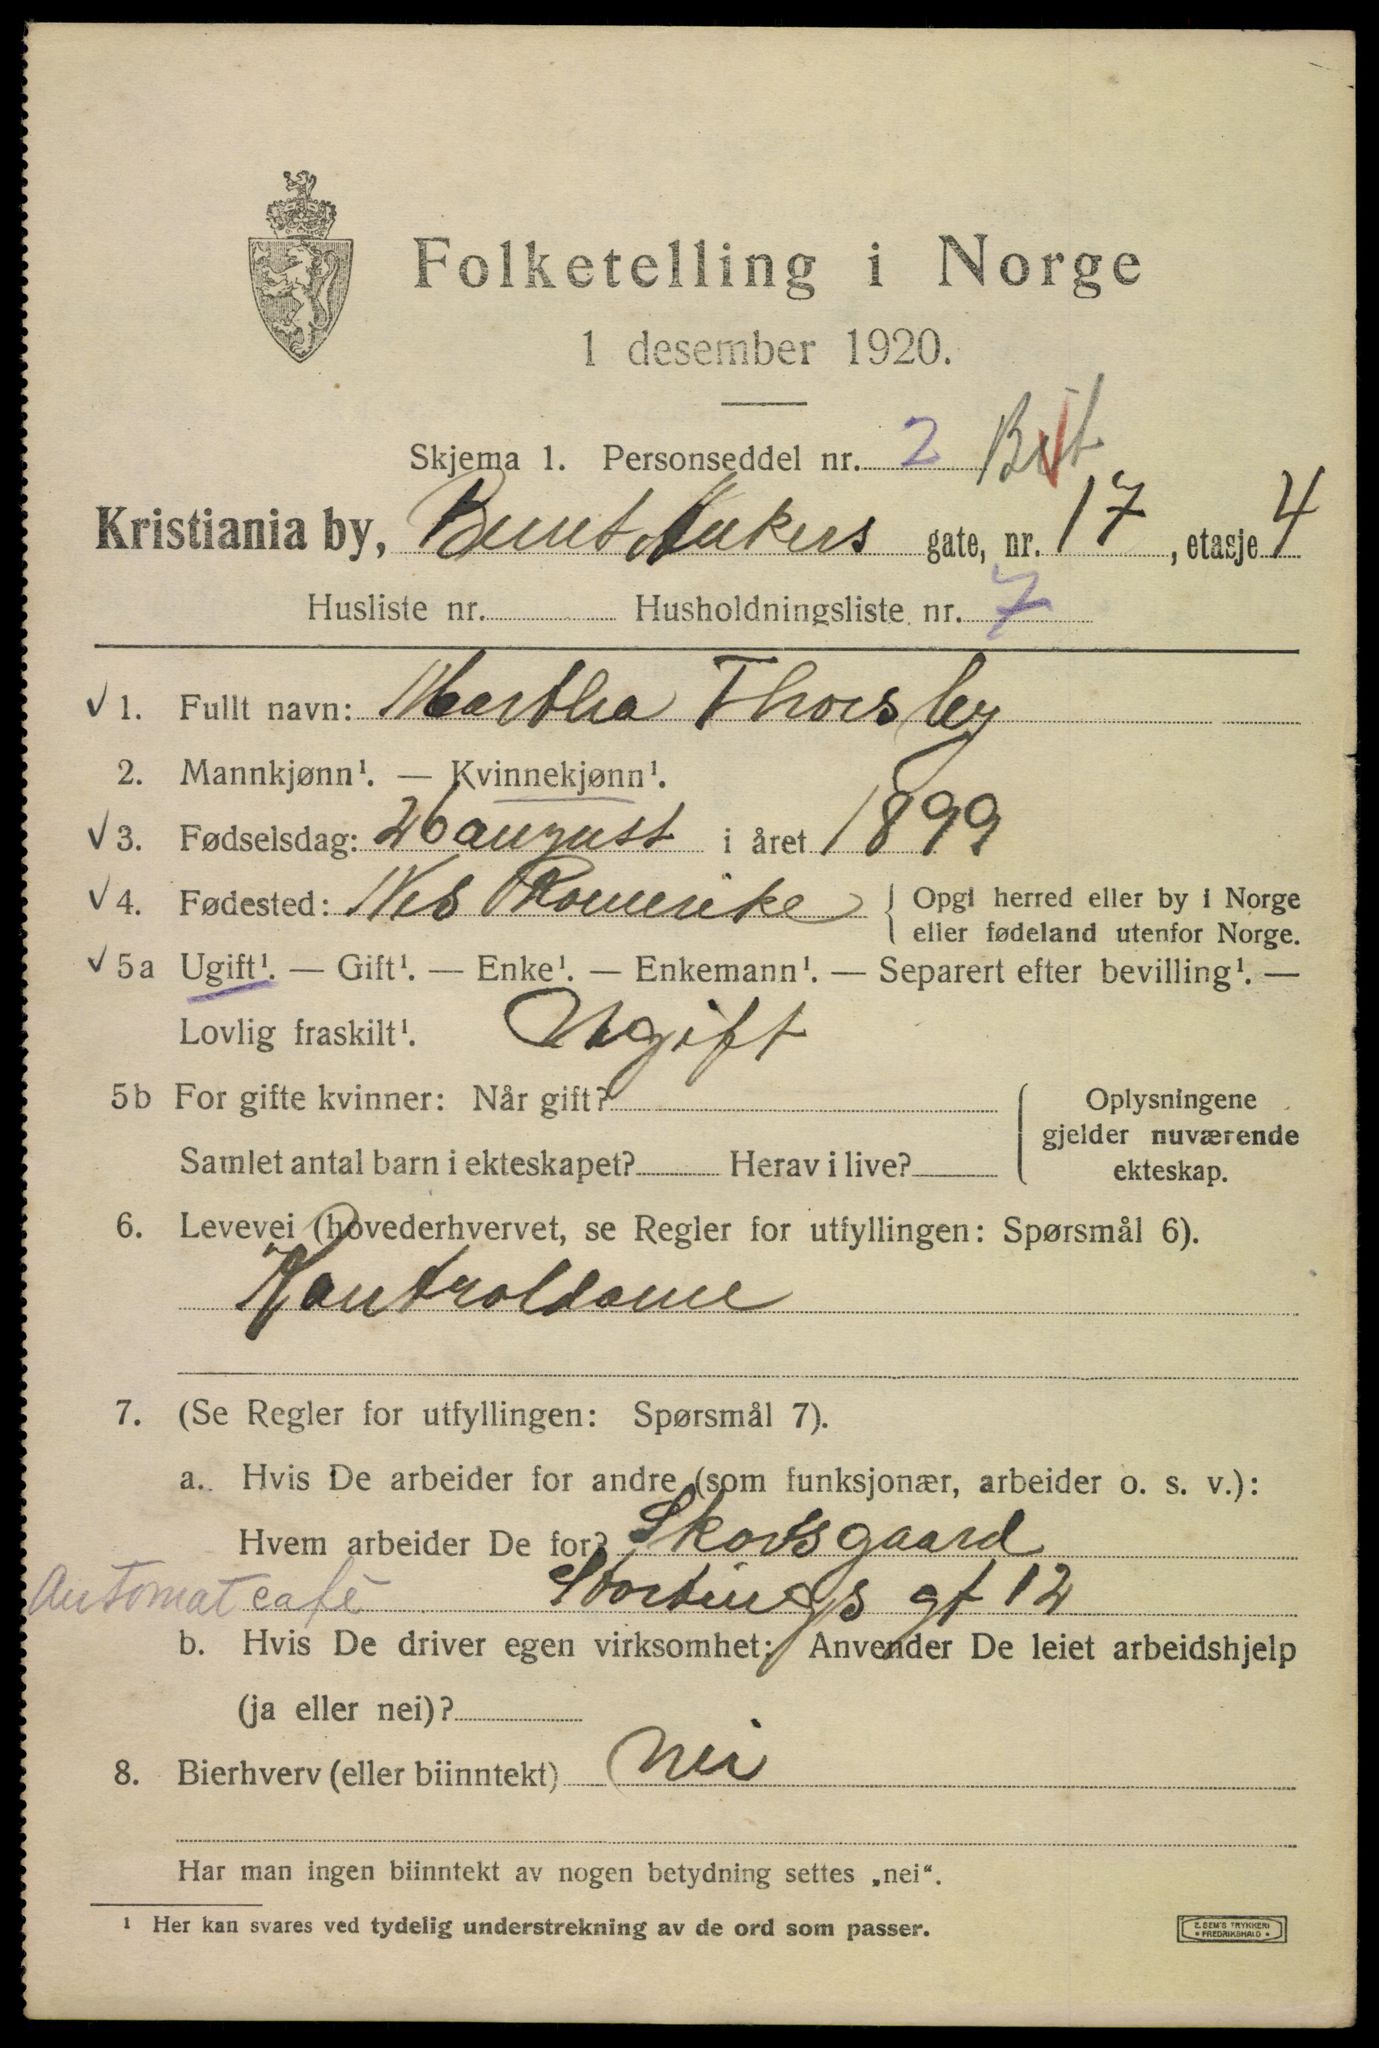 Folketelling i Norge
1 desember 1920.
Skjema 1. Personseddel nr. 2
Kristiania by, Bernt Ankers gate, nr. 17, etasje 4
Husliste nr. Husholdningsliste nr. 7
✓ 1. Fullt navn: Martha Thorsby
2. Mannkjønn¹. — Kvinnekjønn¹.
✓ 3. Fødselsdag: 26 august i året 1899
✓ 4. Fødested: Nes Romerike { Opgi herred eller by i Norge
eller fødeland utenfor Norge.
✓ 5a Ugift¹. — Gift¹. — Enke¹. — Enkemann¹. — Separert efter bevilling¹. —
Lovlig fraskilt¹. Ugift
5b For gifte kvinner: Når gift? { Oplysningene
gjelder nuværende
Samlet antal barn i ekteskapet? Herav i live? ekteskap.
6. Levevei (hovederhvervet, se Regler for utfyllingen: Spørsmål 6).
Kontroldame
7. (Se Regler for utfyllingen: Spørsmål 7).
a. Hvis De arbeider for andre (som funksjonær, arbeider o. s. v.):
Hvem arbeider De for? Skovsgaard
Automatcafé Stortings gt 12
b. Hvis De driver egen virksomhet: Anvender De leiet arbeidshjelp
(ja eller nei)?
8. Bierhverv (eller biinntekt) nei
Har man ingen biinntekt av nogen betydning settes „nei“.
¹ Her kan svares ved tydelig understrekning av de ord som passer.
E. SEM'S TRYKKERI
• FREDRIKSHALD •